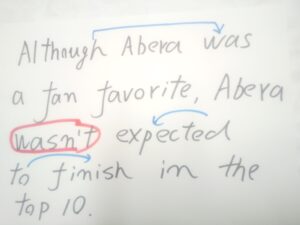 Although Abera was
a fan favorite, Abera
wasn't expected
to finish in the
top 10.